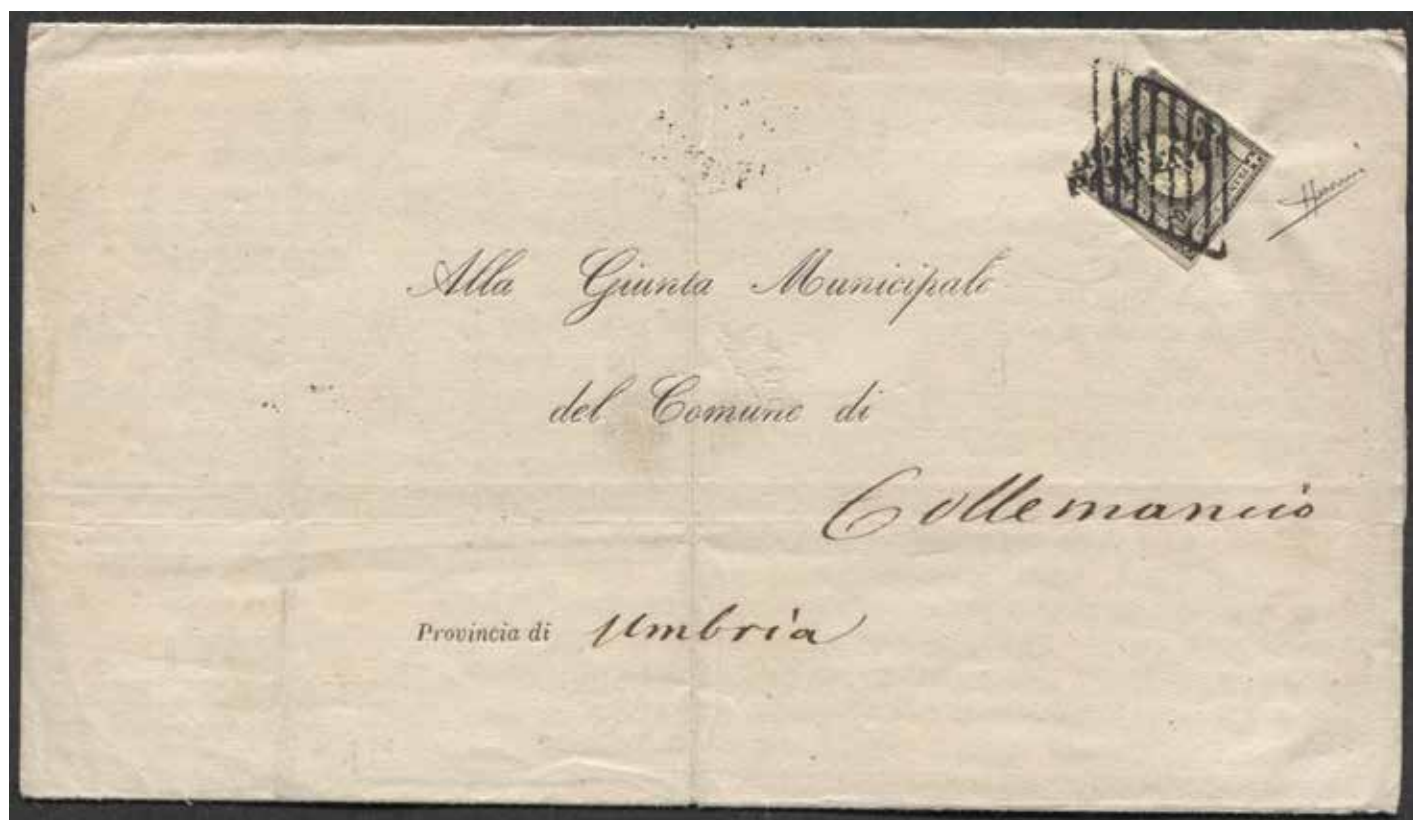 Alla Giunta Municipale
del Comune di
Collemancio
Provincia di Umbria